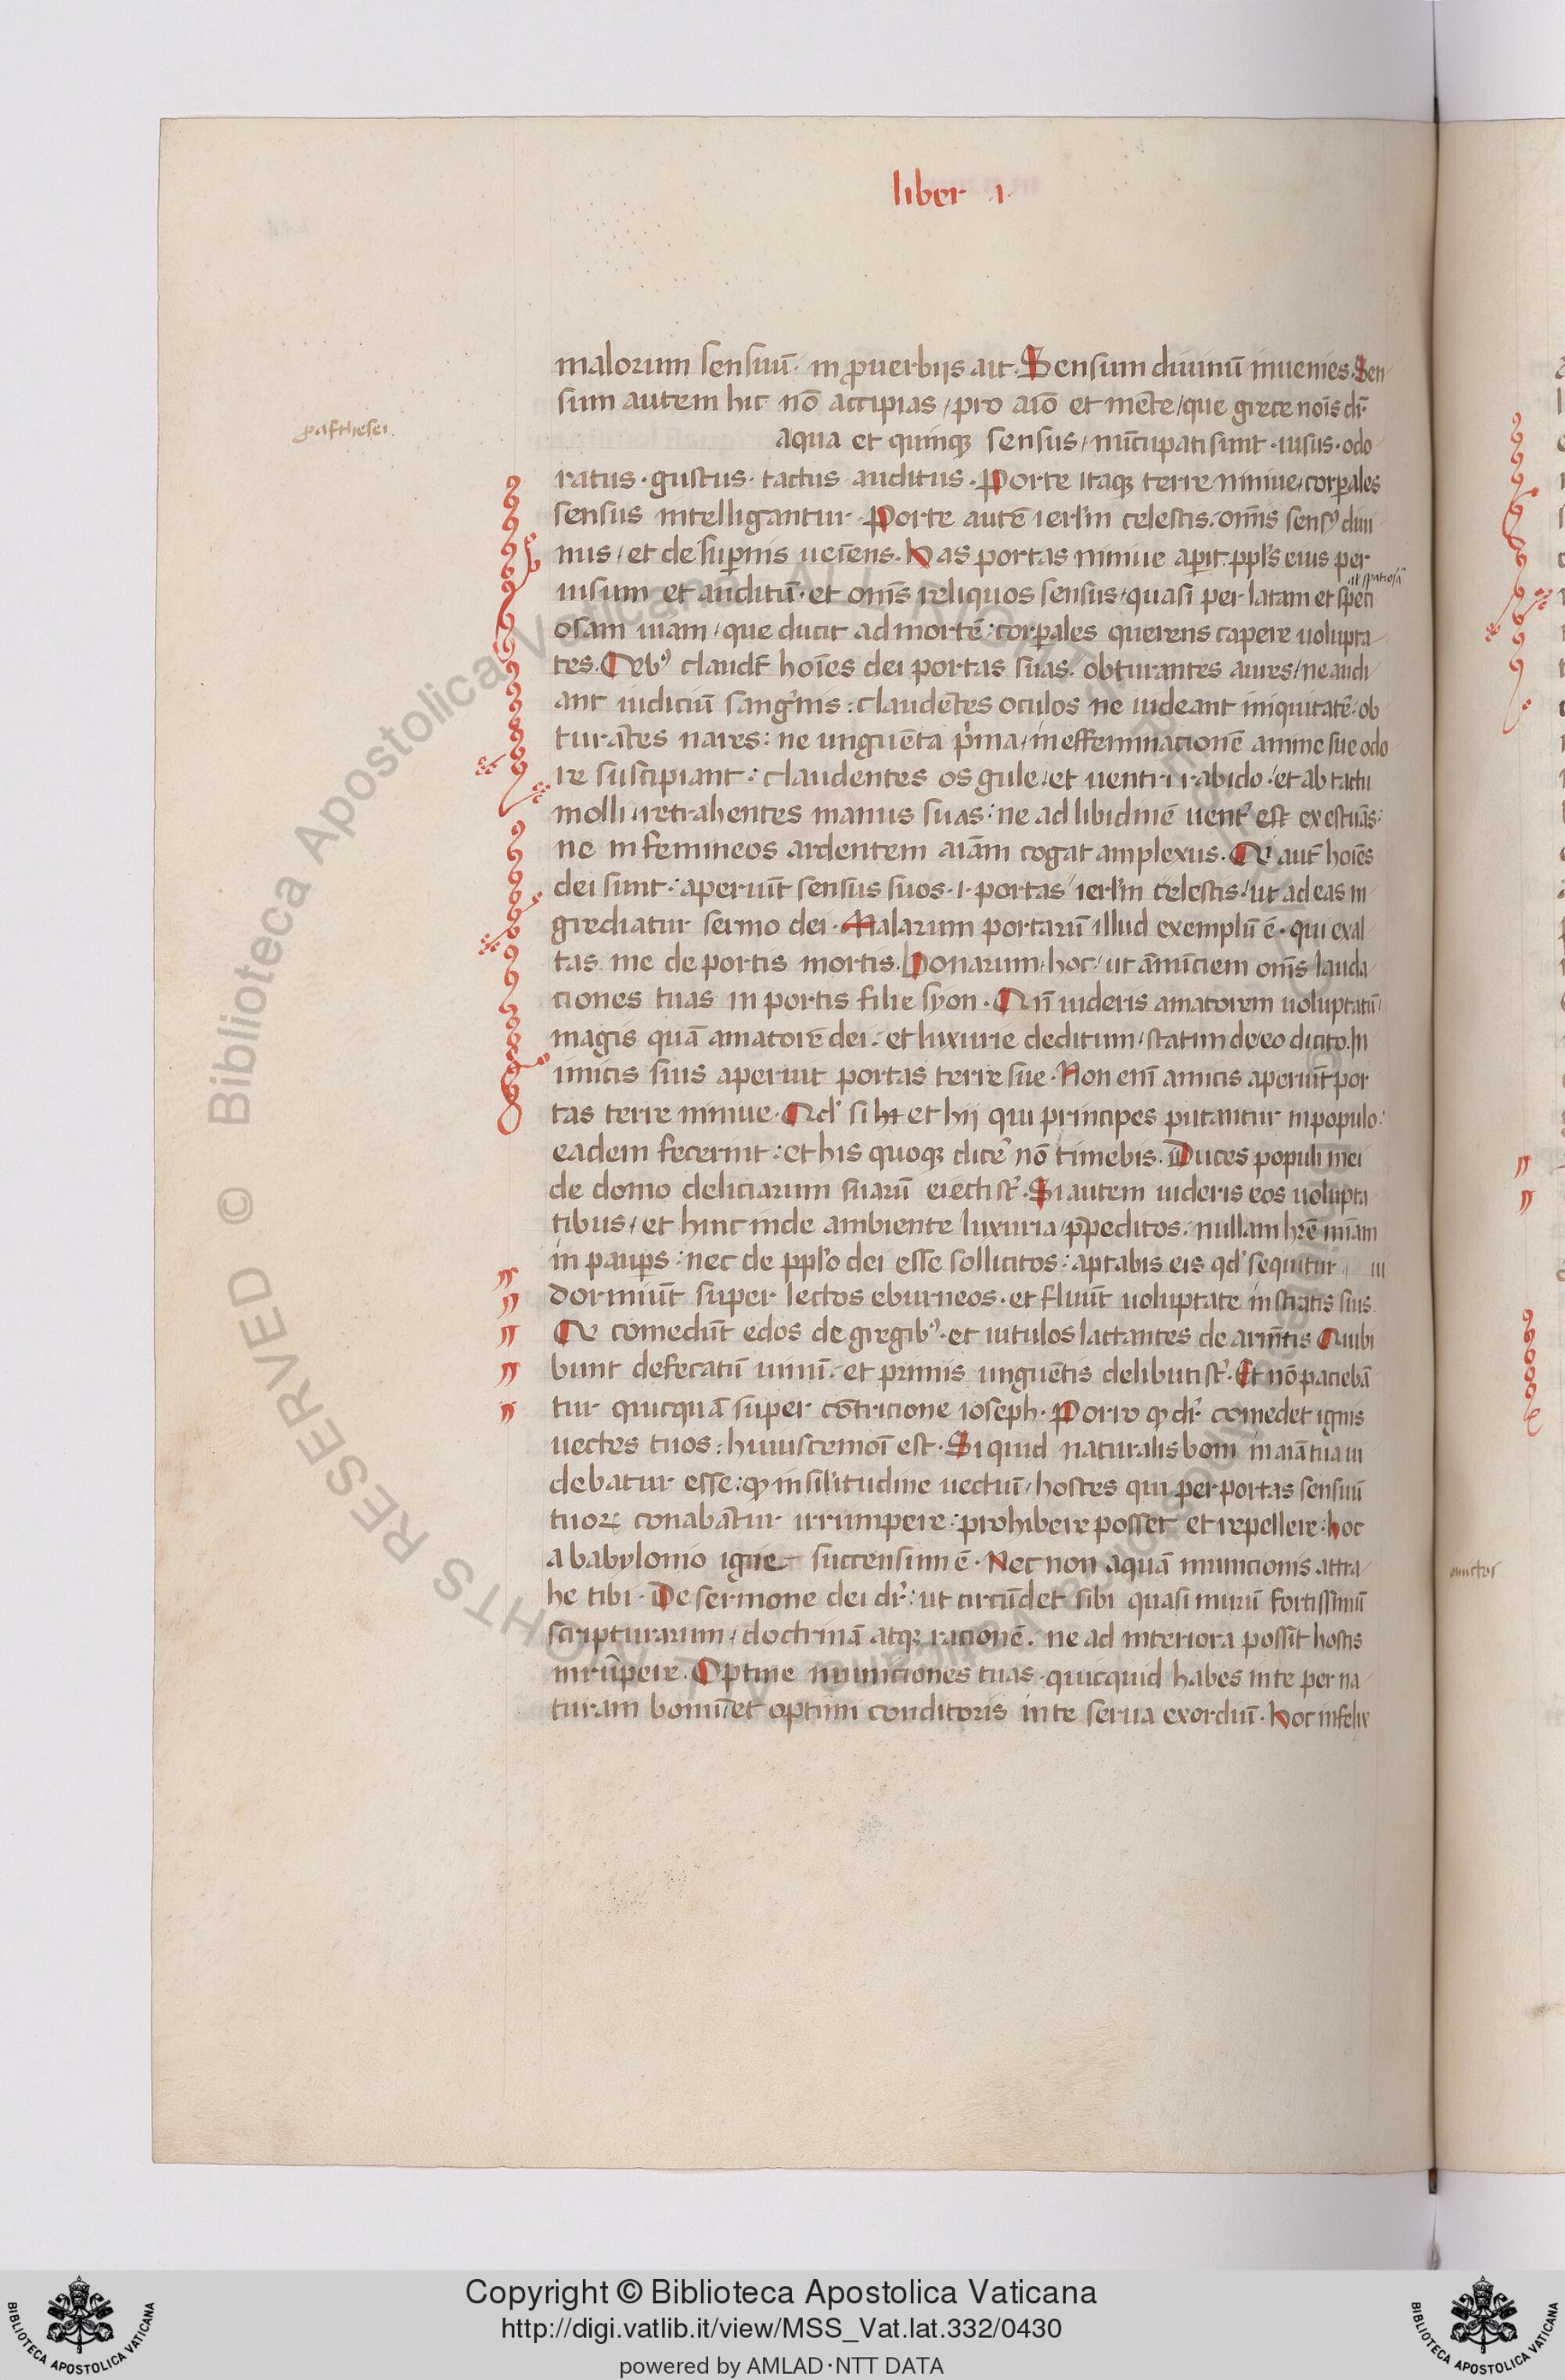 liber .i.
malorum sensuū. in ꝓuerbijs ait. Sensum diuinū inuenies. Sen
sum autem hic nō accipias / pro aīo et mēte / que grece noīs dr̄.
aqua et quinqꝫ sensus / nūcupati sunt . uisus . odo
ratus . gustus . tactus auditus . Porte itaqꝫ terre niniue / corꝑales
sensus intelligantur . Porte autē ierl'm celestis. om̄is sensꝰ diui
nus / et de suꝑnis ueiens. Has portas niniue aꝑit ppl's eius per
al' spatiosā
uisum et auditū. et om̄s reliquos sensus / quasi per latam et speci
osam uiam / que ducit ad mortē : corꝑales querens capere uolupta
tes. Qebꝰ claudt̄ hoīes dei portas suas. obturantes aures / ne audi
ant iudiciū sang'nis : claudētes oculos ne uideant iniquitatē. ob
turātes nares : ne unguēta p'ma / in effeminacionē anime sue odo
re suscipiant : claudentes os gule / et uentri rabido . et ab tactu
molli / retrahentes manus suas : ne ad libidinē uent' est exestuās :
ne in femineos ardentem aīam cogat amplexus. Qi aut̄ hoīes
dei sunt : aperiūt sensus suos .i. portas ierl'm celestis / ut ad eas in
grediatur sermo dei . Malarum portarū illud exemplū ē. qui exal
tas me de portis mortis. Bonarum hoc / ut ānūciem om̄s lauda
ciones tuas in portis filie syon . Qn̄ uideris amatorem uoluptatū /
magis quā amatorē dei. et luxurie deditum / statim de eo dicito. In
imicis suis aperuit portas terre sue . Non enī amicis aperiūt por
tas terre niniue . Qd' si hi et hij qui principes putantur in populo :
eadem fecerint : et his quoqꝫ dicē' nō timebis. Duces populi mei
de domo deliciarum suarū eiecti st̄. Si autem uideris eos uolupta
tibus / et hinc inde ambiente luxuria / p̄peditos. nullam hr̄e mīam
in pauꝑs : nec de ppl'o dei esse sollicitos : aptabis eis qd' sequitur
dormiūt super lectos eburneos . et fluūt uoluptate in stratis suis.
Qi comedūt edos de gregibꝰ. et uitulos lactantes de arm̄tis Qui bi
bunt defecatū uinū. et primis unguētis delibuti st̄. Et nō paciebā
tur quicquā super cōtricione ioseph . Porro qꝫ dr̄ comedet ignis
uectes tuos : huiuscemoī est . Si quid naturalis boni in aīa tua ui
debatur esse : qꝫ in sil'itudine uectiū / hostes qui per portas sensuū
tuoꝝ conabātur irrumpere : prohibere posset et repellere : hoc
a babylonio igne succensum ē . Nec non aquā municionis attra
he tibi . De sermone dei dr̄ : ut circūdet sibi quasi murū fortissimū
scripturarum / doctrinā atqꝫ racionē. ne ad interiora possīt hostis
inrūpere . Optine municiones tuas . quicquid habes in te per na
turam bonū et optimi conditoris in te serua exordiū . Hoc infelix
Biblioteca Apostolica Vaticana
RIGHTS RESERVED ©
Copyright © Biblioteca Apostolica Vaticana
http://digi.vatlib.it/view/MSS_Vat.lat.332/0430
powered by AMLAD·NTT DATA
BIBLIOTECA APOSTOLICA VATICANA
BIBLIOTECA APOSTOLICA VATICANA